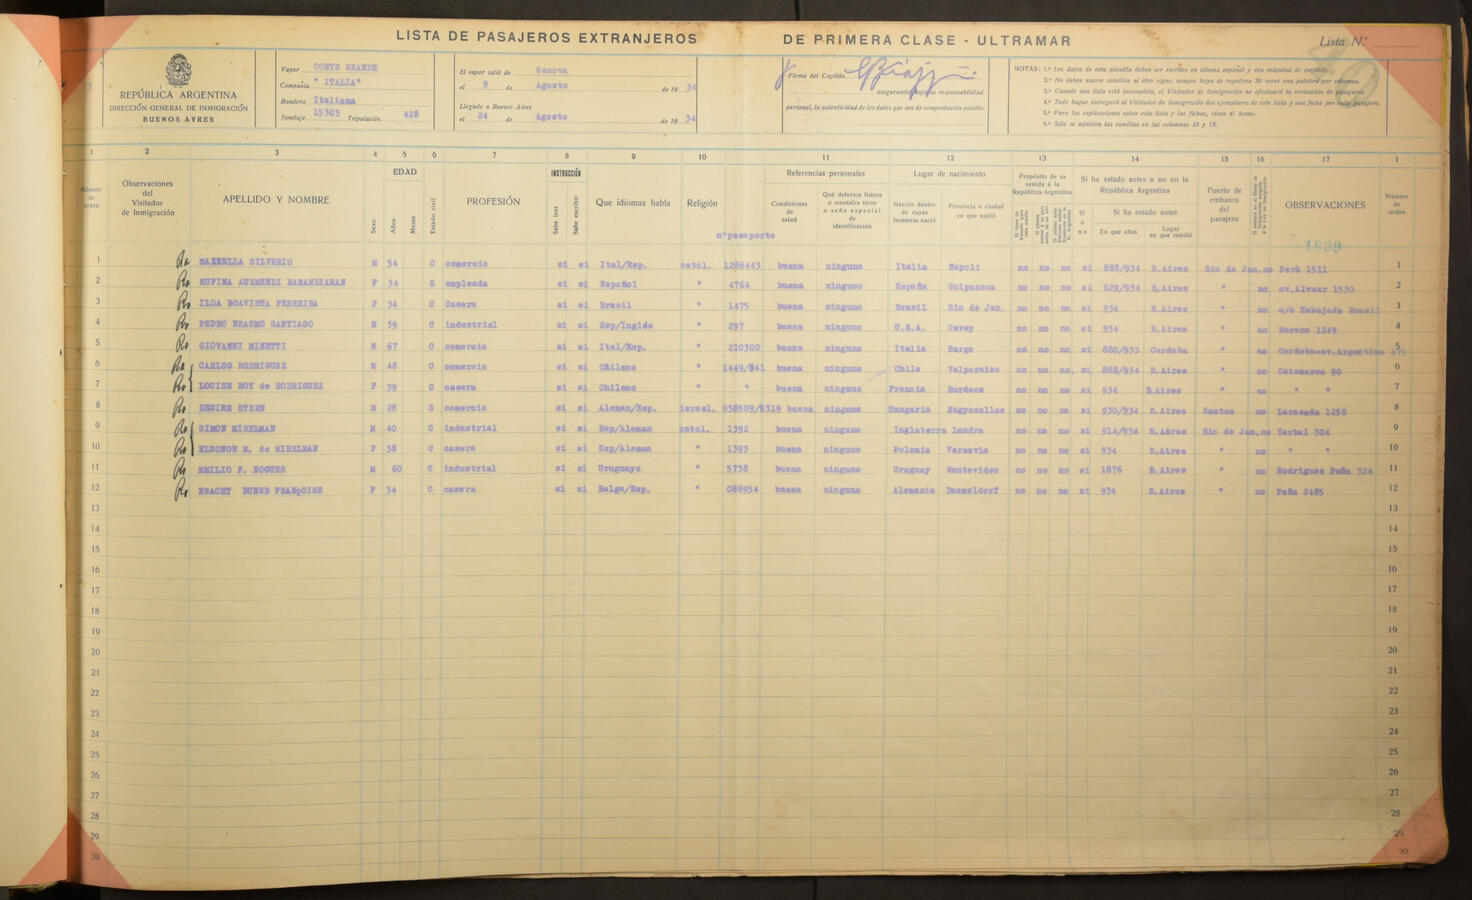 LISTA DE PASAJEROS EXTRANJEROS DE PRIMERA CLASE - ULTRAMAR Lista N.º
REPÚBLICA ARGENTINA
DIRECCIÓN GENERAL DE INMIGRACIÓN
BUENOS AYRES
Vapor CONTE GRANDE
Compañía "ITALIA"
Bandera Italiana
Tonelaje 15303 Tripulación 428
El vapor salió de Genova
el 9 de Agosto de 19 34
Llegado a Buenos Aires
el 24 de Agosto de 19 34
Firma del Capitán
asegurando bajo su responsabilidad
personal, la autenticidad de los datos que son de comprobación posible.
NOTAS: 1.ª Los datos de esta planilla deben ser escritos en idioma español y con máquina de escribir.
2.ª No deben usarse comillas ni otro signo, aunque haya de repetirse 30 veces una palabra por columna.
3.ª Cuando una lista esté incompleta, el Visitador de Inmigración no efectuará la revisación de pasajeros.
4.ª Todo buque entregará al Visitador de Inmigración dos ejemplares de esta lista y una ficha por cada pasajero.
5.ª Para las explicaciones sobre esta lista y las fichas, véase al dorso.
6.ª Sólo se admiten las comillas en las columnas 10 y 15.
1 2 3 4 5 6 7 8 9 10 11 12 13 14 15 16 17 1
Número de orden
Observaciones del Visitador de Inmigración
APELLIDO Y NOMBRE
Sexo
EDAD
Años
Meses
Estado civil
PROFESIÓN
INSTRUCCIÓN
Sabe leer
Sabe escribir
Que idiomas habla
Religión
nºpasaporte
Referencias personales
Condiciones de salud
Qué defectos físicos o mentales tiene o seña especial de identificación
Lugar de nacimiento
Nación dentro de cuyas fronteras nació
Provincia o ciudad en que nació
Propósito de su venida á la República Argentina
Si ha estado antes o no en la República Argentina
Si o no
Si ha estado antes
En que años
Lugar en que residió
Puerto de embarco del pasajero
OBSERVACIONES
Número de orden
1889
1 MAZZELLA SILVERIO M 54 C comercio si si Ital/Esp. catol. 1286443 buena ninguna Italia Napoli no no no si 888/934 B.Aires Rio de Jan. no Perù 1511 1
2 RUFINA AUSMENDI BARANDIARAN F 34 S empleada si si Español " 4764 buena ninguno España Guipuzcoa no no no si 929/934 B.Aires " no av.Alvear 1530 2
3 ILDA BOAVISTA FERREIRA F 34 C Casera si si Brasil " 1475 buena ninguno Brasil Rio de Jan. no no no si 934 B.Aires " no c/o Embajada Brasil 3
4 PEDRO ERASMO SANTIAGO M 39 C industrial si si Esp/Inglés " 297 buena ninguno U.S.A. Cavey no no no si 934 B.Aires " no Moreno 1249 4
5 GIOVANNI MINETTI M 67 C comercio si si Ital/Esp. " 210300 buena ninguno Italia Barge no no no si 880/933 Cordoba " no Cordoba-av.Argentina 5
6 CARLOS RODRIGUEZ M 48 C comercio si si Chileno " 1449/841 buena ninguno Chile Valparaiso no no no, si 888/934 B.Aires " no Catamarca 90 6
7 LOUISE BOY de RODRIGUEZ F 39 C casera si si Chileno " " buena ninguno Francia Burdeos no no no si 934 B.Aires " " " 7
8 DESIRE STEEN M 28 S comercio si si Aleman/Esp. israel. 038509/8319 buena ninguna Hungaria Nagyszollos no no no si 930/934 B.Aires Santos no 1250 8
9 SIMON MIRELMAN M 40 C industrial si si Esp/Aleman catol. 1392 buena ninguno Inglaterra Londra no no no si 914/934 B.Aires Rio de Jan. no Yerbal 304 9
10 ELEONOR M. de MIRELMAN F 38 C casera si si Esp/Aleman " 1393 buena ninguno Polonia Varsavia no no no si 934 B.Aires " no " " 10
11 EMILIO F. NOGUES M 60 C industrial si si Uruguayo " 5738 buena ninguno Uruguay Montevideo no no no si 1876 B.Aires " no Rodriguez Peña 324 11
12 BRACHT BUNGE FRANÇOISE F 34 C casera si si Belga/Esp. " 088954 buena ninguno Alemania Dusseldorf no no no si 934 B.Aires " no Peña 2485 12
13 13
14 14
15 15
16 16
17 17
18 18
19 19
20 20
21 21
22 22
23 23
24 24
25 25
26 26
27 27
28 28
29 29
30 30